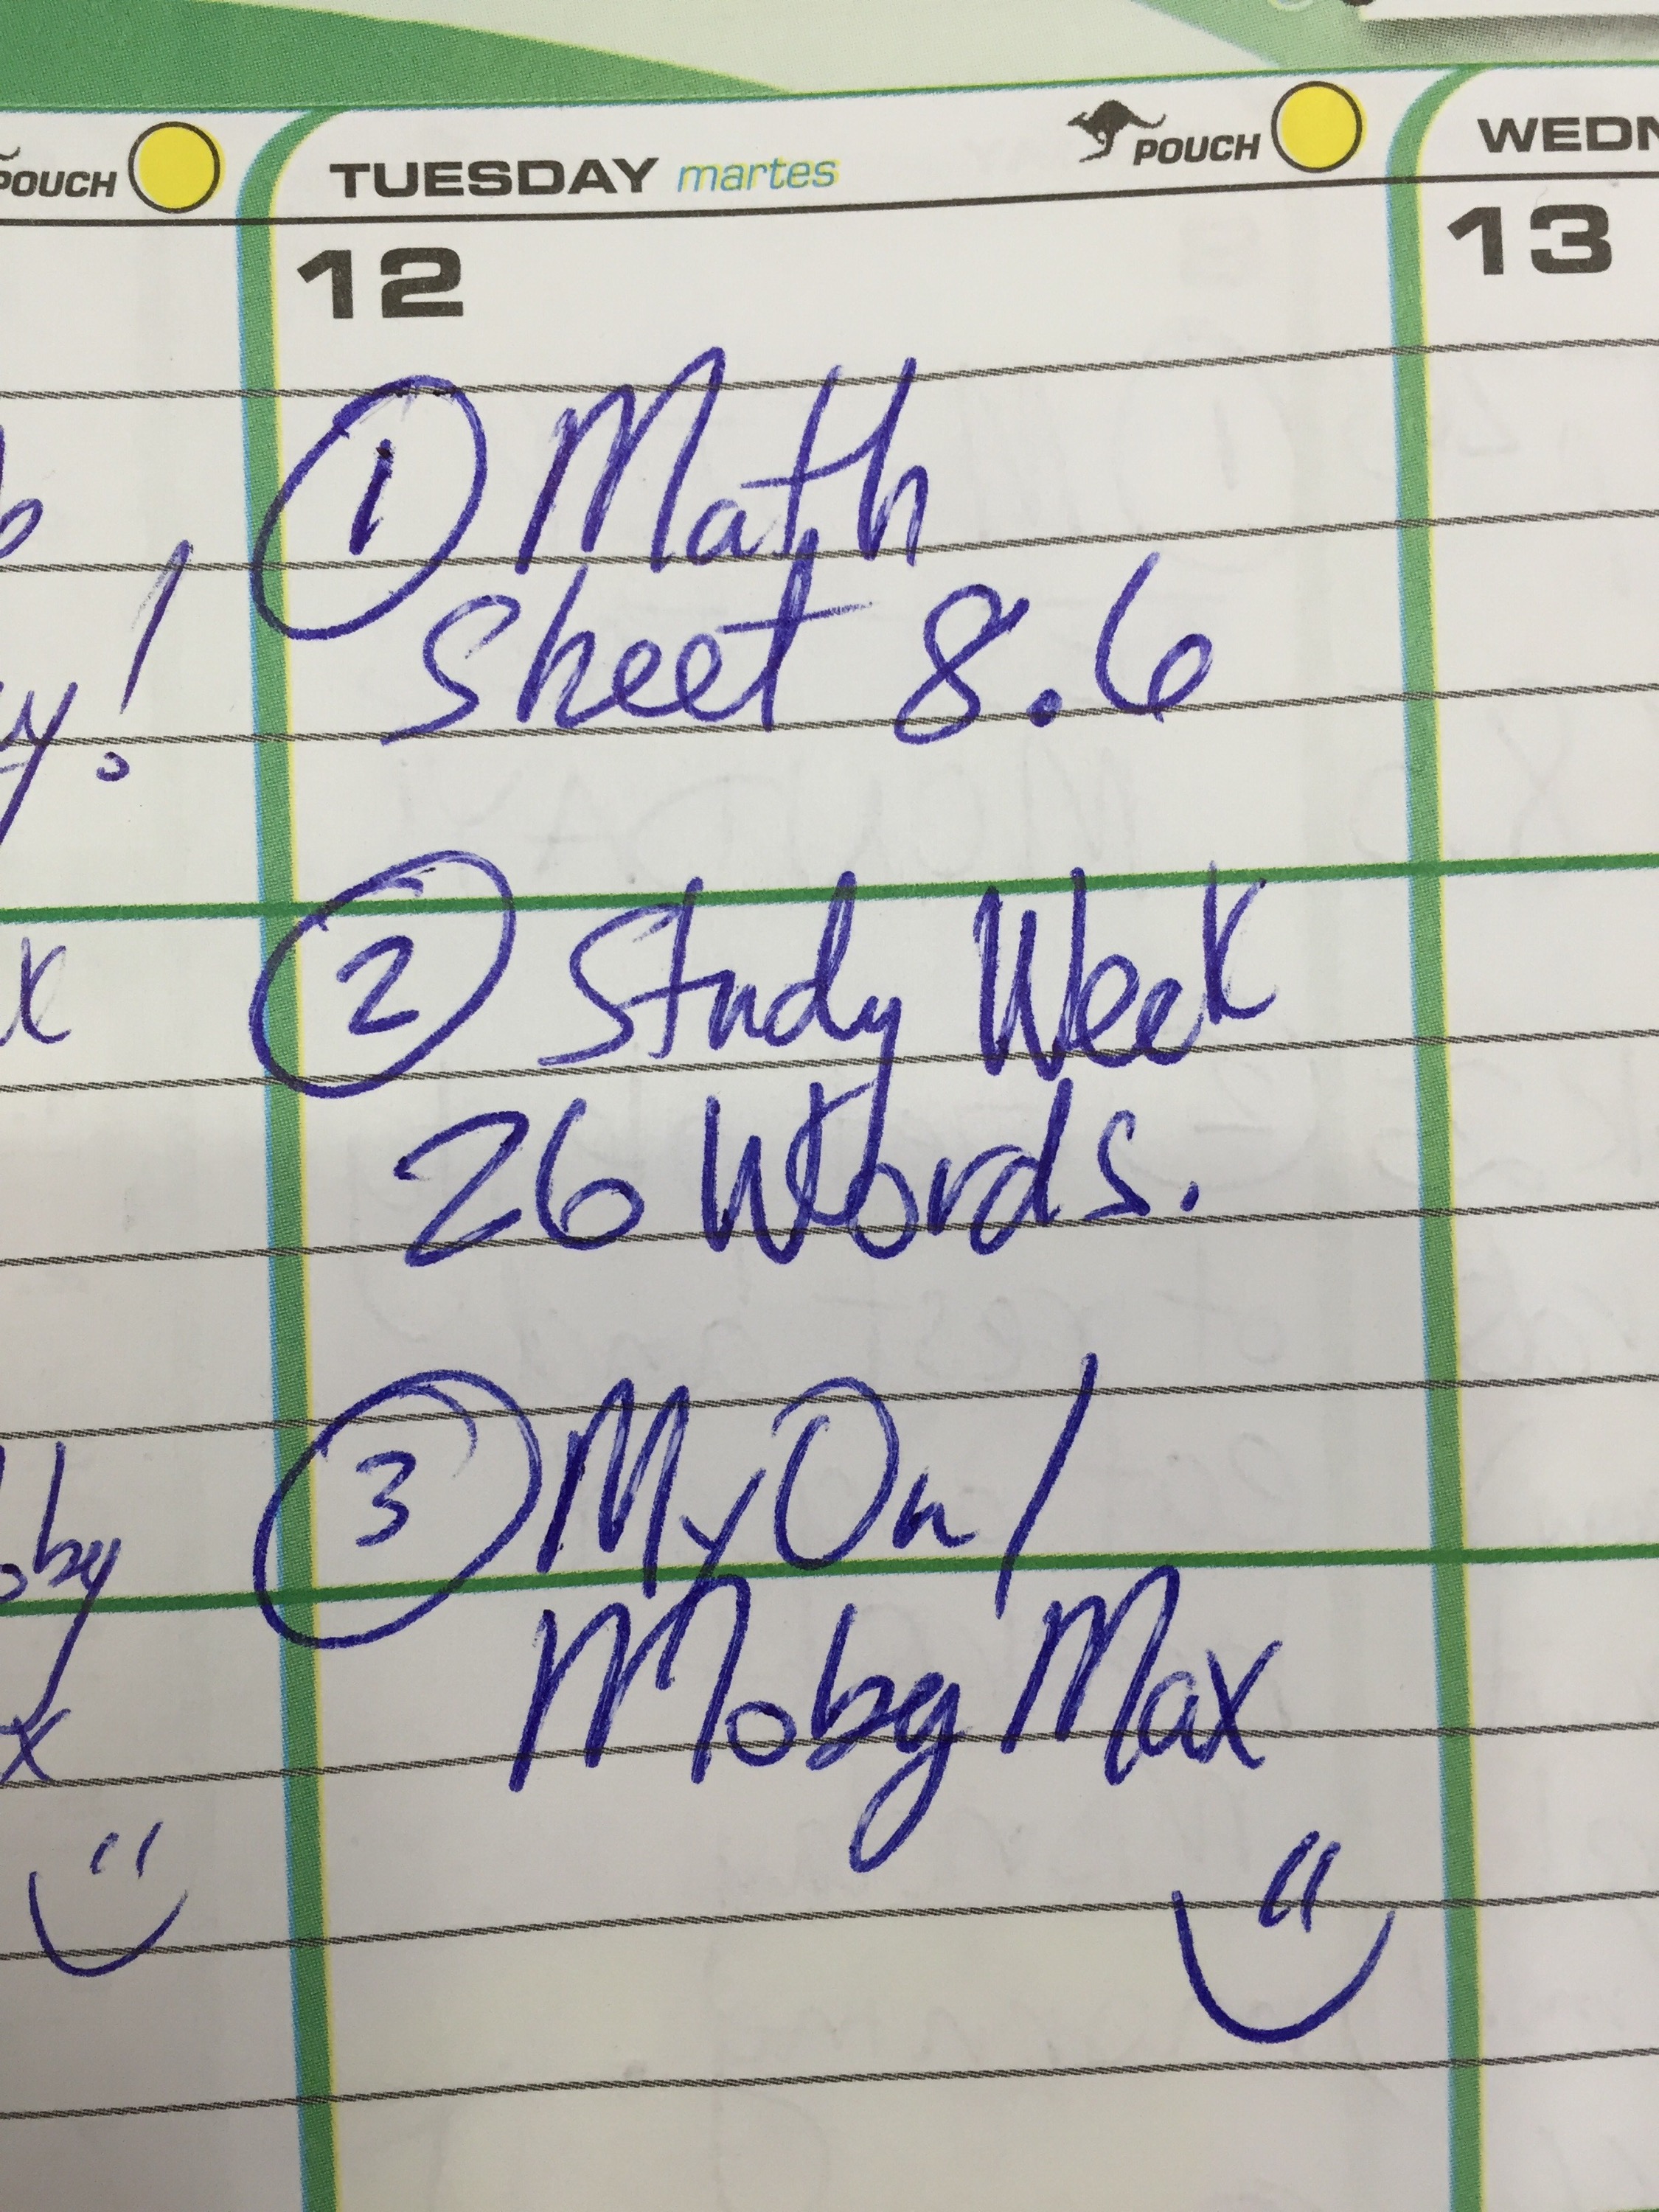 POUCH
TUESDAY martes POUCH
WEDN
12
13
① Math
Sheet 8.6
y!
② Study Week
26 Words.
x
③ MyOn/
Moby Max
oby
x